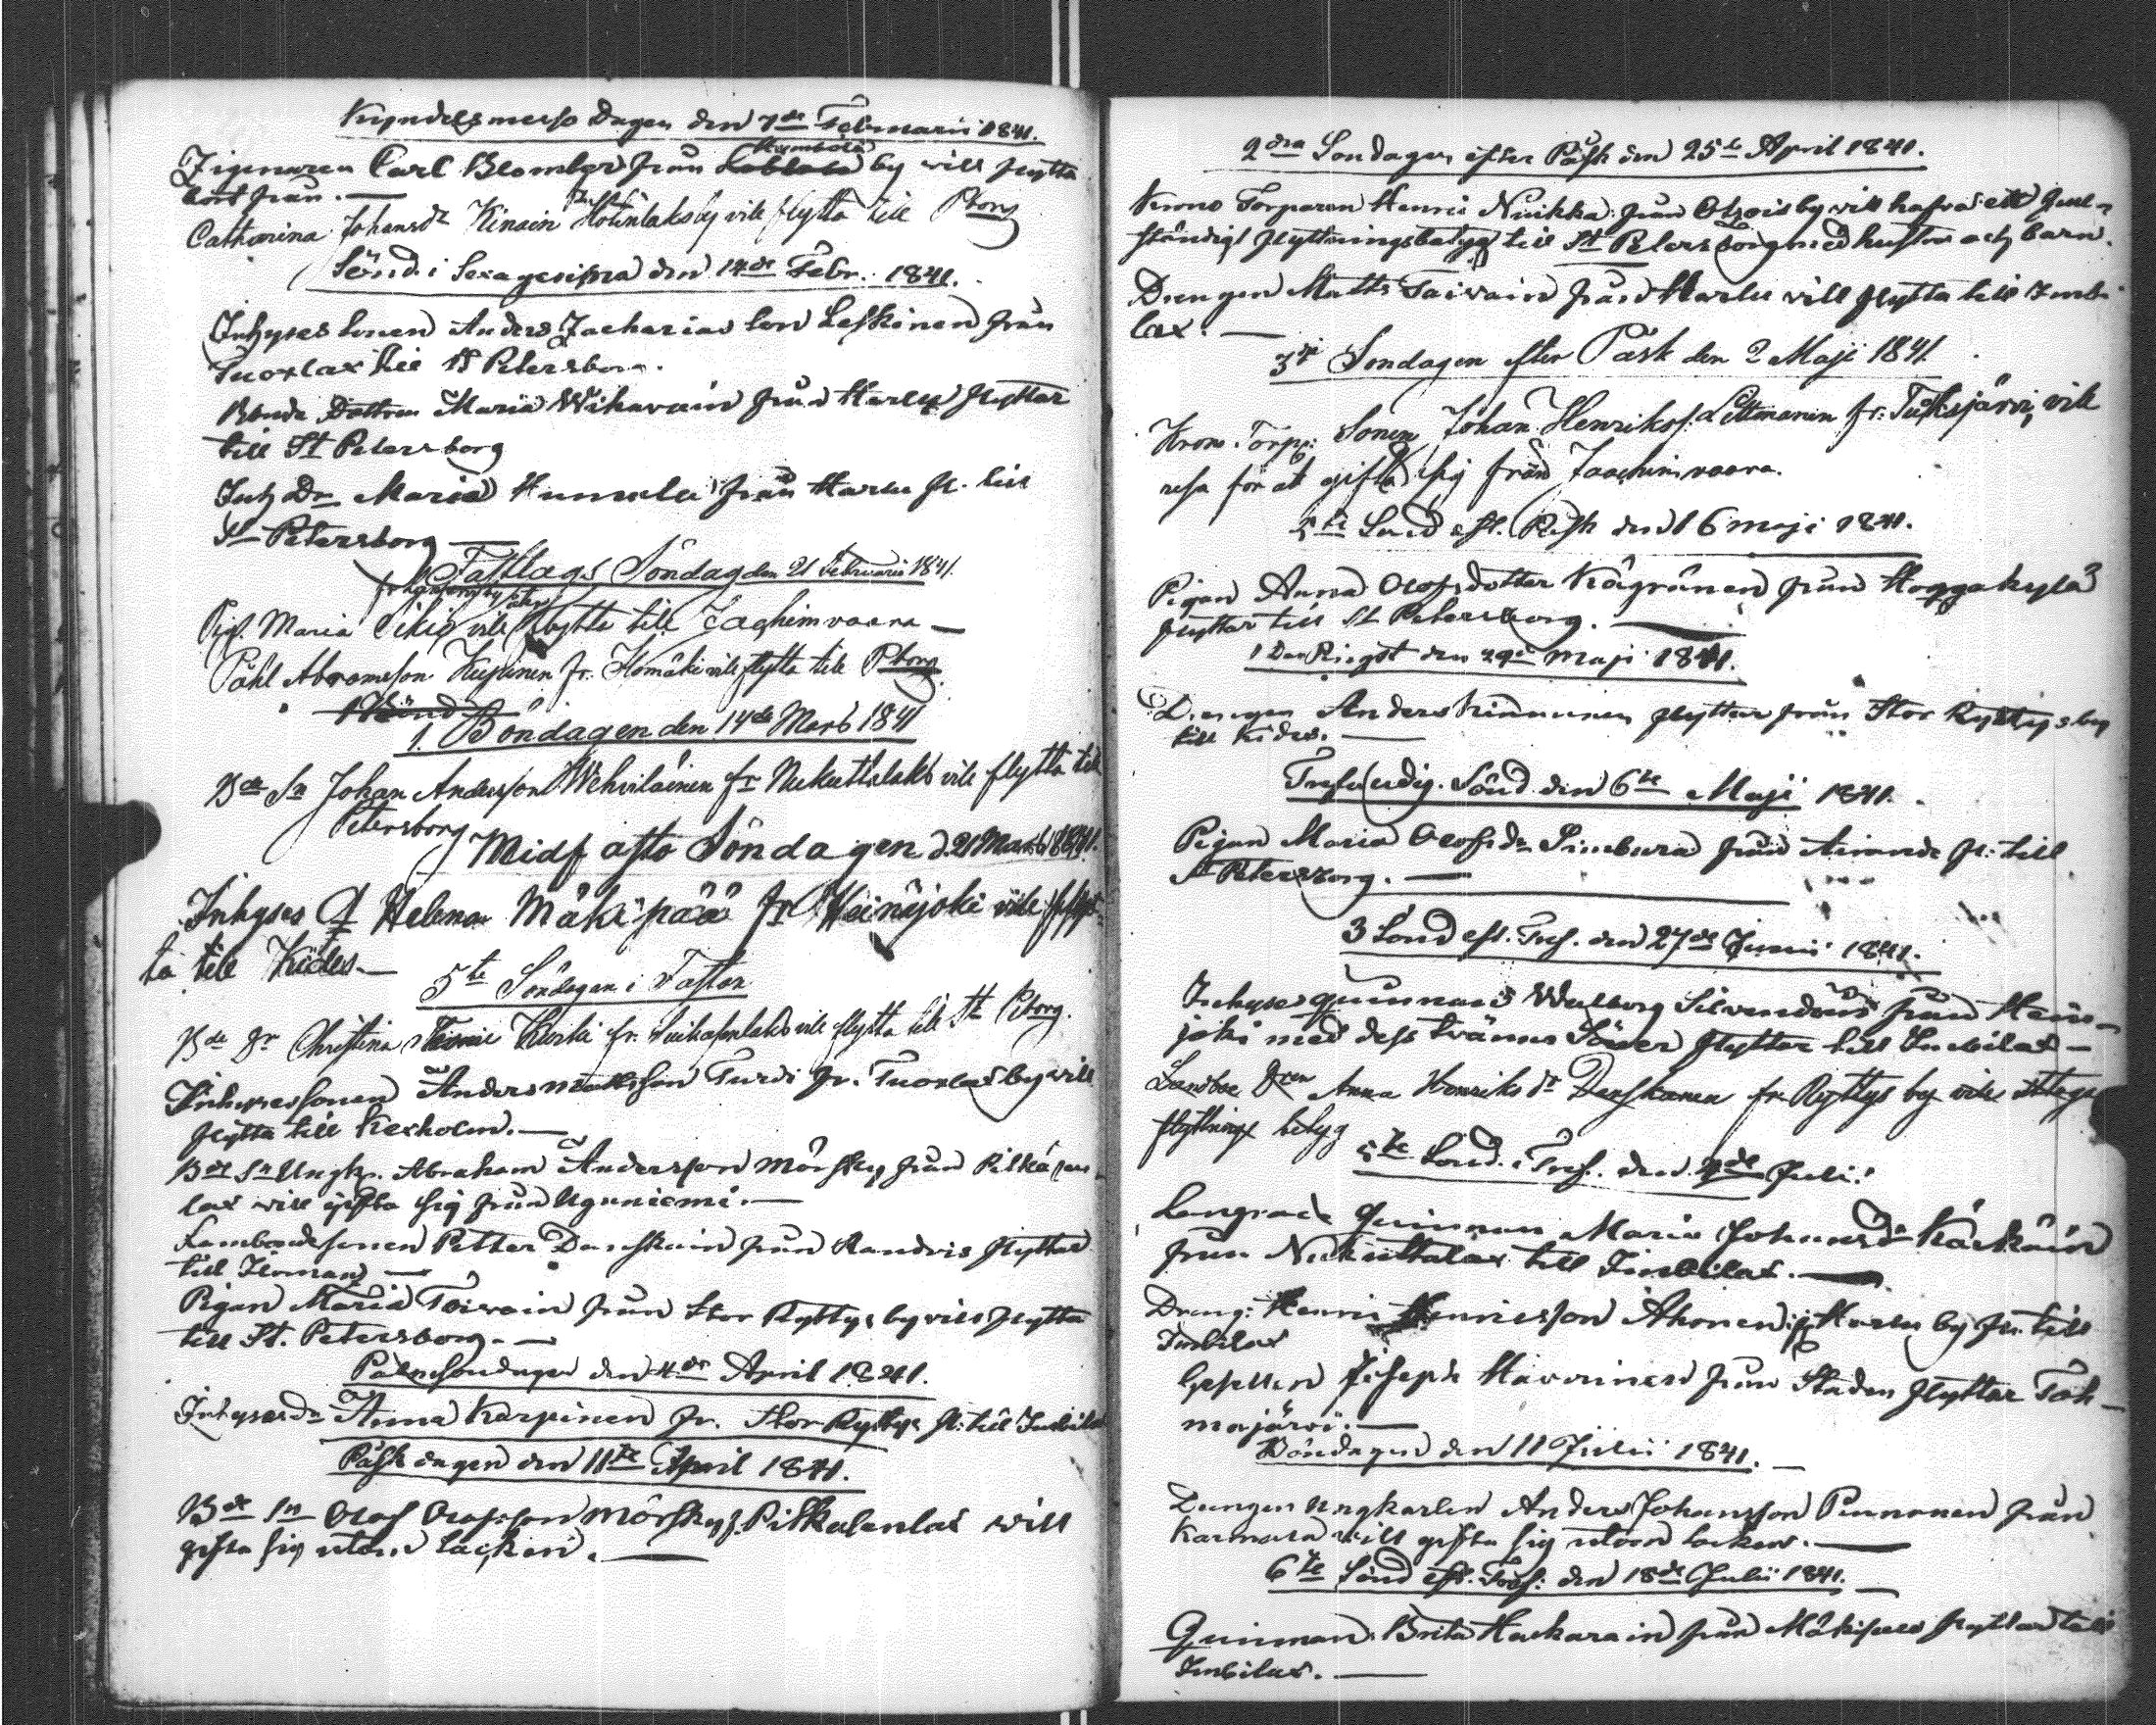 Kyndelsmesso Dagen den 7de Februarii 1841.
Zigenaren Carl Blomber från Kymbola by will flytta
bort från. —
Catharina Johansdr Kinain vill flytta till Pborg
Sönd. i Sexagesima den 14de Febr. 1841.
Inhyses Sonen Anders Zacharias Son Leskinen från
Tuoxlax till St Petersborg.
Bonde Dottren Maria Wihavain från Harlu flyttar
till St Petersborg
Inh Dr Maria Humala från Harlu fl. till
St Petersborg —
Fastlags Söndag den 21 Februarii 1841.
Pig. Maria vill flytta till Jaghimvaara —
Påhl Abramsson fr. vill flytta till Pborg
1. Böndagen den 14de Mars 1841
Bde Sn Johan Andersson Wehviläinen fr Nukuttalaks vill flytta till
Petersborg
Midfasto Söndagen d. 21 Mars 1841.
Inhyses Helena Mäkipää fr Heinäjoki vill flyt-
ta till Kides. —
5te Söndagen i Fastan
Bde Dr Christina Kurki fr. vill flytta till St Pborg.
Inhysessonen Anders Mattsson Turdi fr. Tuoxlax by will
flytta till Kexholm. —
Bde Sn Ungk. Abraham Andersson Mörsky från
lax will gifta sig från Uguniemi. —
Petter Danskain från Randvis flyttar
till Ilomans —
Pigan Maria Toivain från Stor Ryttys by vill flytta
till St. Petersborg. —
Palmsöndagen den 4de April 1841.
Inhysesdr Anna Karpinen fr. Stor Ryttys fl: till Imbilax
Påsk dagen den 11te April 1841.
Bde Sn Olof Olofsson Mörsky f. will
gifta sig utom Socken. —
2dra Söndagen efter Påsk den 25te April 1841.
Krono Torparen Henric Nuikka från Otsois by will hafva ett full-
ständigt flyttningsbetyg till St Petersborg med hustru och barn.
Drengen Matts Taivain från Harlu will flytta till Imbi-
lax. —
3dje Söndagen efter Påsk den 2 Maji 1841
Kron. Torp: Sonen Johan Henriks. Littmanen fr. Tuoksjärvi vill
resa för at gifta sig från Jaachimvaara.
5te Sönd eft. Påsk den 16 Maji 1841.
Pigan Anna Olofsdotter Kägränen från Hoggakylä
flyttar till St Petersborg. —
1 Dag Pingst den 29de Maji 1841.
Drengen Anders Kinnunen flyttar från Stor Ryttys by
till Kides. —
Trefaldig. Sönd den 6te Maji 1841.
Pigan Maria Olofsdr Simbura från Airanne fl: till
St Petersborg. —
3 Sönd eft. Tref. den 27de Junii 1841.
Inhyses quinnan Walborg Silvendoin från Heinä-
joki med dess tvänne Söner flyttar till Imbilax —
Landboe Dren Anna Henriks dr Danskanen fr. Ryttys by vill uttaga
flyttnings betyg
5te Sönd. i Tref. den 4de Juli.
Quinnan Maria Johansdr Käckäin
från Nukuttalax till Imbilax. —
Dreng: Henric Henricsson Ahonen Harlu by fl. till
Imbilax
Gesellen Joseph Havrinen från Staden flyttar Toh-
majärvi. —
Böndagen den 11 Julii 1841. —
Drengen Ungkarlen Anders Johansson Pennanen från
Karmala will gifta sig utom Socken. —
6te Sönd eft. Tref: den 18de Julii 1841. —
Quinnan Brita Hackarain från Mäkisalo flyttar till
Imbilax. —